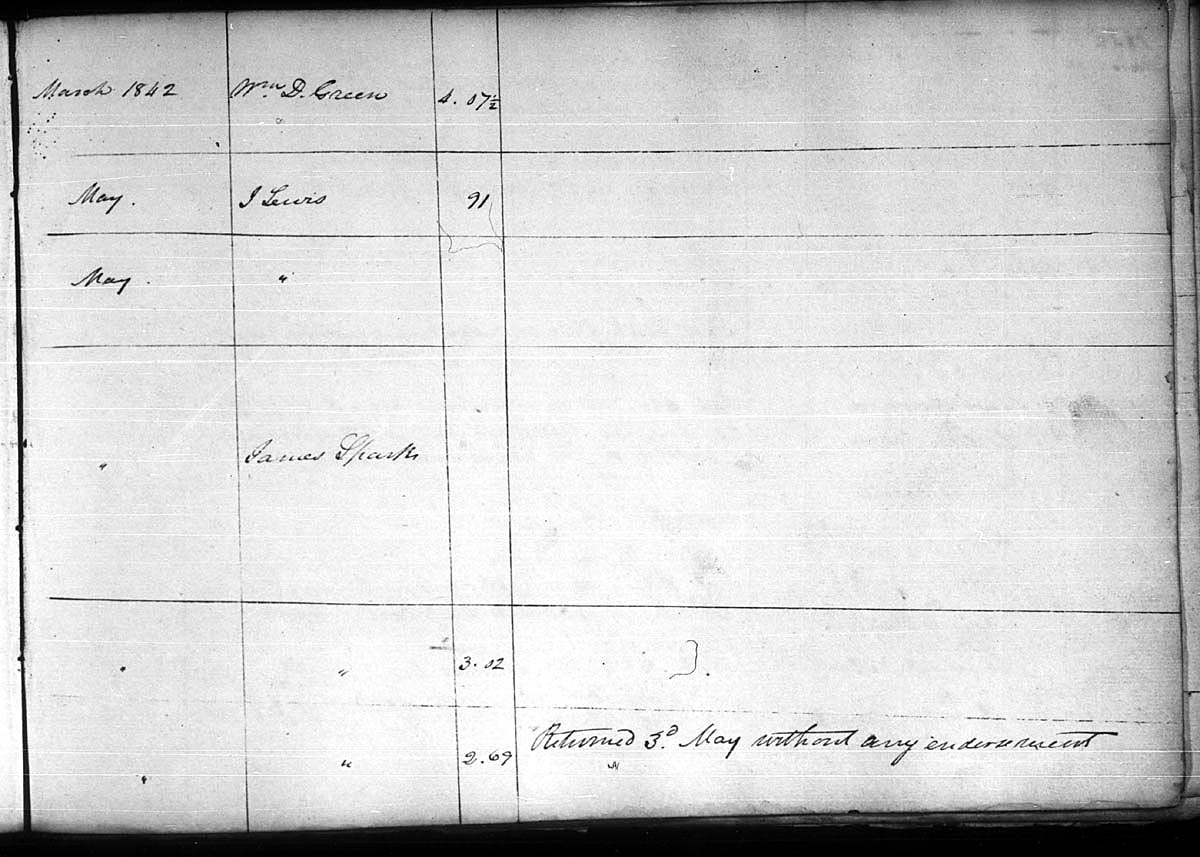 March 1842 Wm D. Green 4. 07½
May. I Lewis 91
May. "
" James Sparks
" " 3. 02 }.
" " 2. 69 Returned 3d May without any endorsement